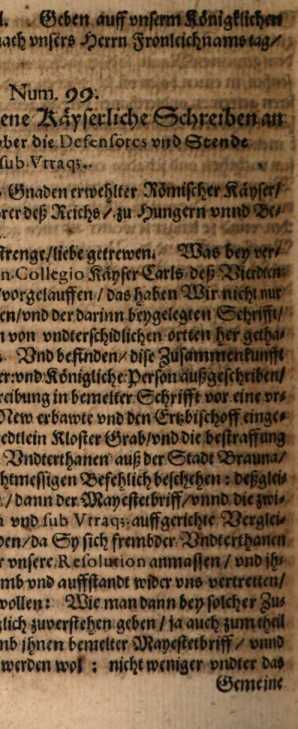 l. Geben auff vnserm Königklichen
nach vnsers Herrn Fronleichnamstag/
Num. 99.
ene Käyserliche Schreiben an
vber die Defensores vnd Stende
sub Vtraq;.
Gnaden erwehlter Römischer Käyser/
rer deß Reichs / zu Hungern vnnd Be-
strenge/liebe getrewen. Was bey ver-
n Collegio Käyser Carls deß Vierdten
/vorgelauffen / das haben Wir nicht nur
en/vnd der darinn beygelegten Schrifft/
n von vndterschidlichen örtten her getha-
. Vnd befinden/ dise Zusammenkunfft
er:vnd Königliche Person außgeschriben/
reibung in bemelter Schrifft vor eine vr-
New erbawte vnd den Ertzbischoff einge-
edtlein Kloster Grab/vnd die bestraffung
Vndterthanen auß der Stadt Brauna/
chtmessigen Befehlich beschehen: deßglei-
/ dann der Mayestetbriff/vnnd die zwi-
vnd sub Vtraq; auffgerichte Verglei-
den/da Sy sich frembder Vndterthanen
r vnsere Resolution anmasten / vnd jh-
mb vnd auffstandt wider vns vertretten/
wollen: Wie man dann bey solcher Zu-
zlich zuverstehen geben / ja auch zum theil
mb jhnen bemelter Mayestetbriff / vnnd
werden wol : nicht weniger vndter das
Gemeine